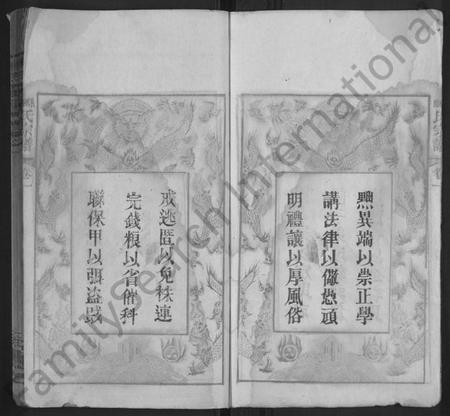 黜異端以崇正學
講法律以儆愚頑
明禮讓以厚風俗
戒逃匿以免株連
完錢粮以省催科
聯保甲以弭盜賊
氏宗譜
卷一
FamilySearch International